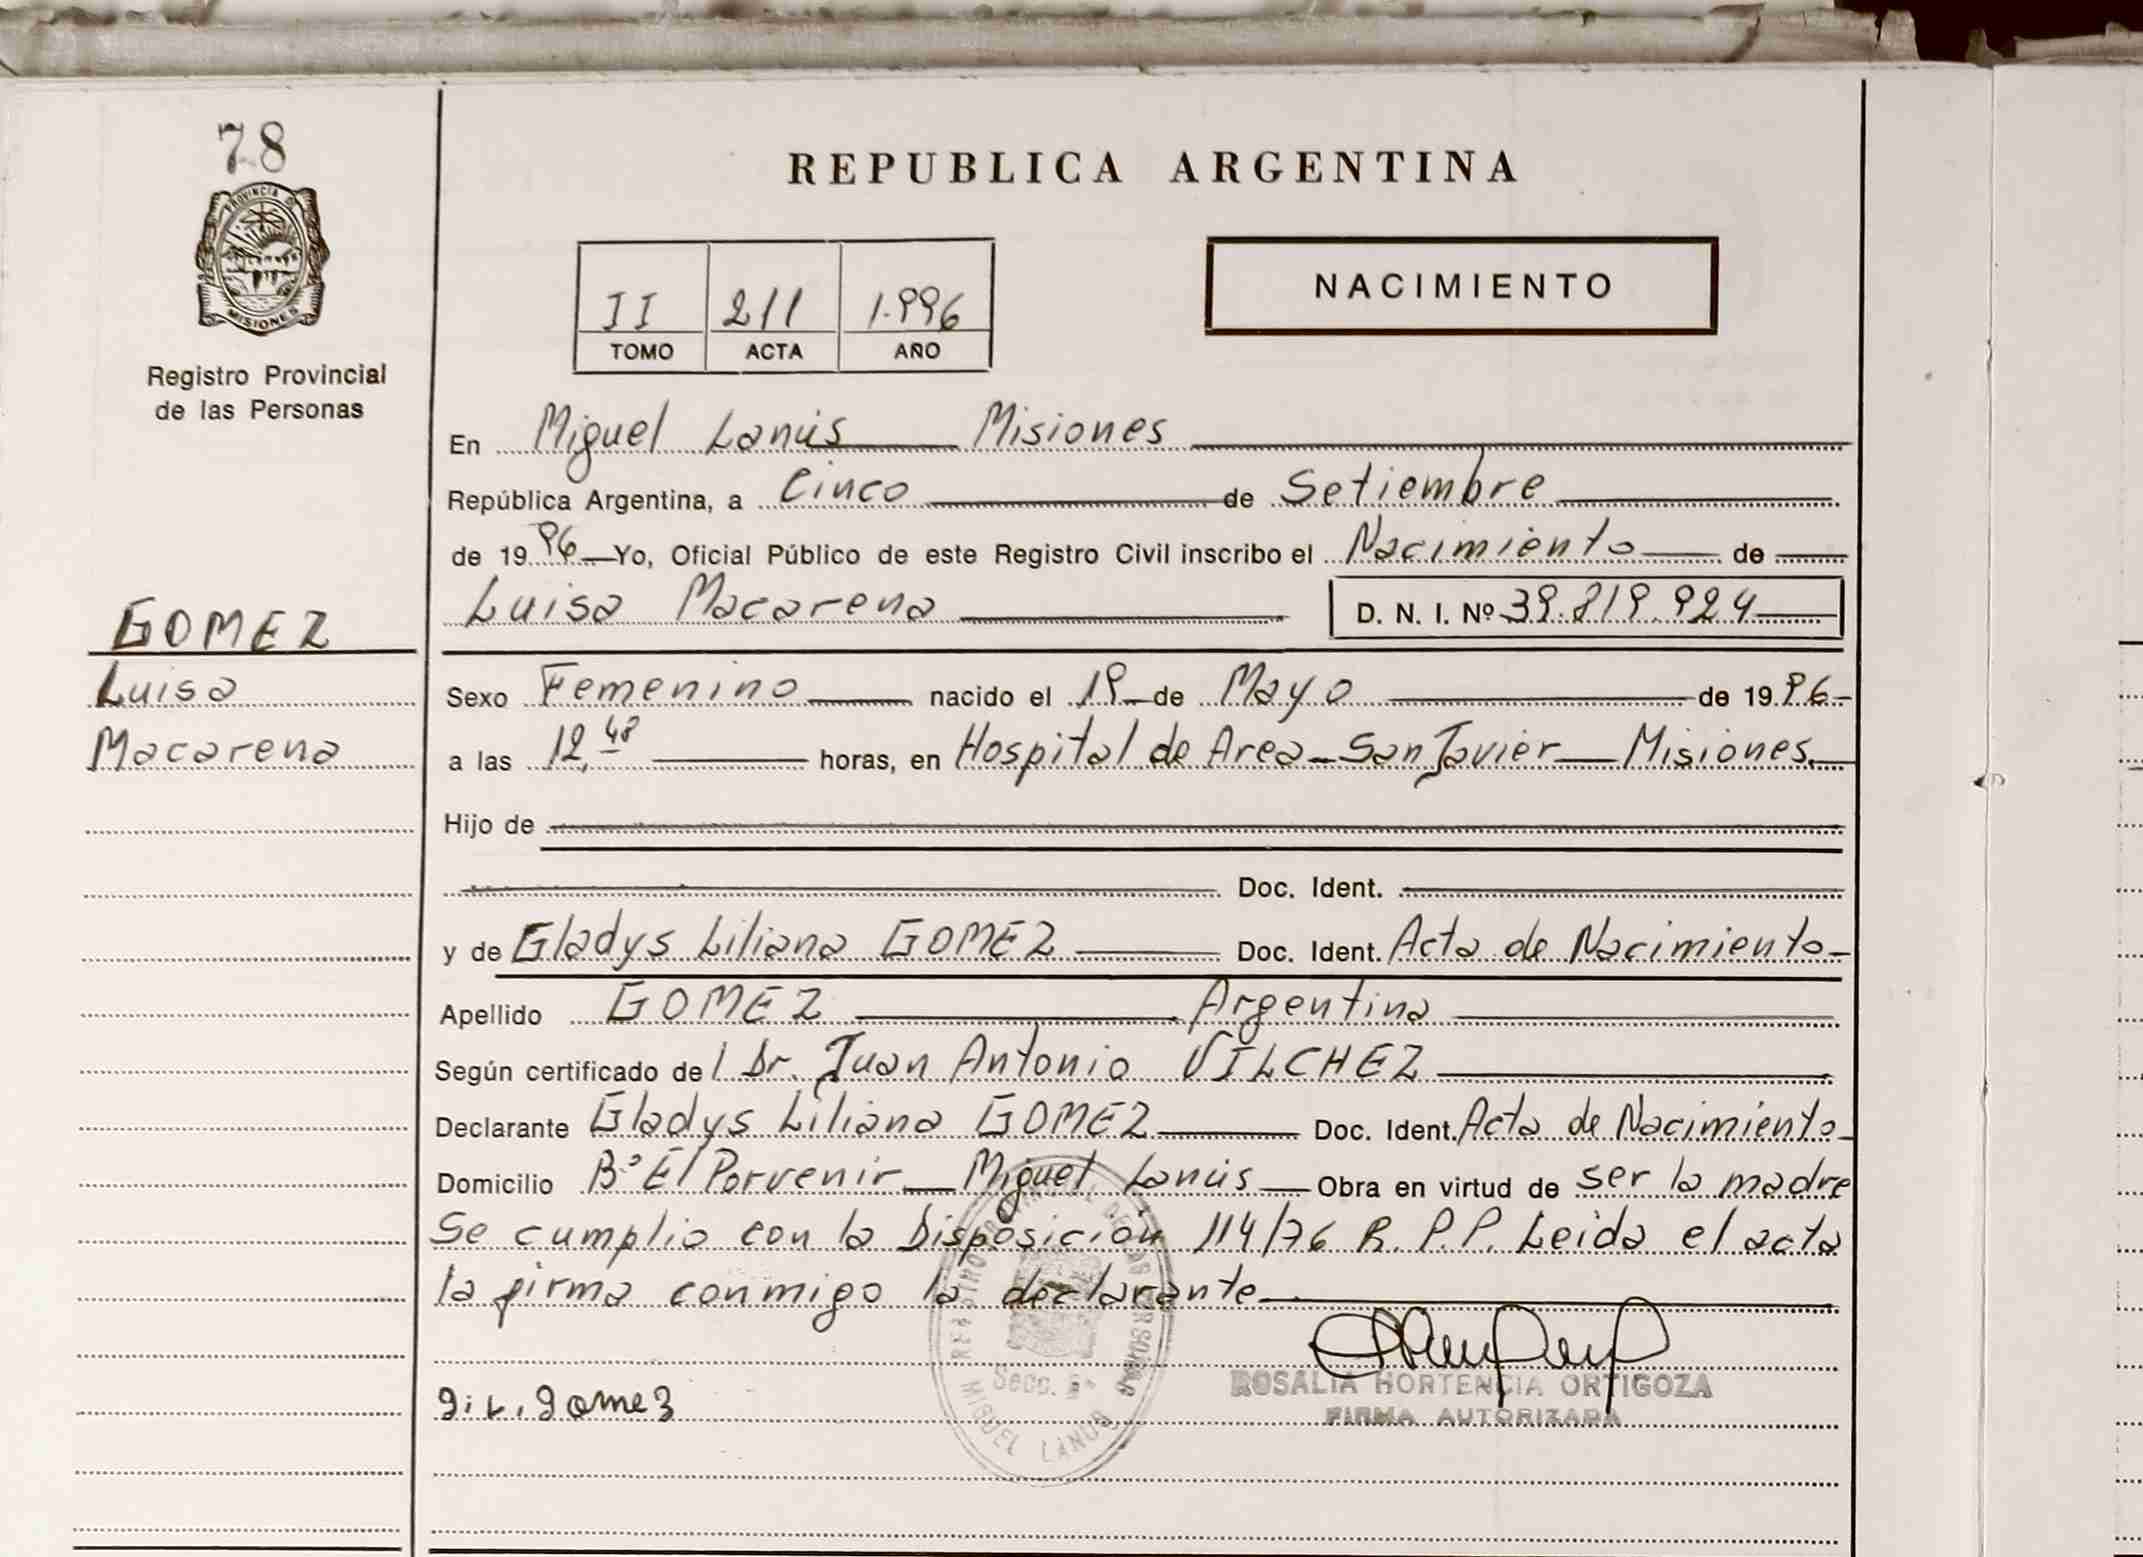 78
PROVINCIA DE
MISIONES
Registro Provincial
de las Personas
GOMEZ
Luisa
Macarena
REPUBLICA ARGENTINA
II 211 1.996
TOMO ACTA AÑO
NACIMIENTO
En Miguel Lanús Misiones
República Argentina, a Cinco de Setiembre
de 19 96 Yo, Oficial Público de este Registro Civil inscribo el Nacimiento de
Luisa Macarena D. N. I. Nº 39.819.924
Sexo Femenino nacido el 19 de Mayo de 19 96
a las 12,48 horas, en Hospital de Area San Javier Misiones
Hijo de
Doc. Ident.
y de Gladys Liliana GOMEZ Doc. Ident. Acta de Nacimiento
Apellido GOMEZ Argentina
Según certificado del Dr. Juan Antonio VILCHEZ
Declarante Gladys Liliana GOMEZ Doc. Ident. Acta de Nacimiento
Domicilio Bº El Porvenir Miguel Lanús Obra en virtud de ser la madre
Se cumplio con la Disposición 114/76 R. P. P. Leida el acta
la firma conmigo la declarante
Secc.
MIGUEL LANUS
ROSALIA HORTENCIA ORTIGOZA
FIRMA AUTORIZADA
g. L. gomez